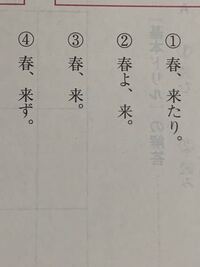 ① 春、来たり。
② 春よ、来。
③ 春、来。
④ 春、来ず。